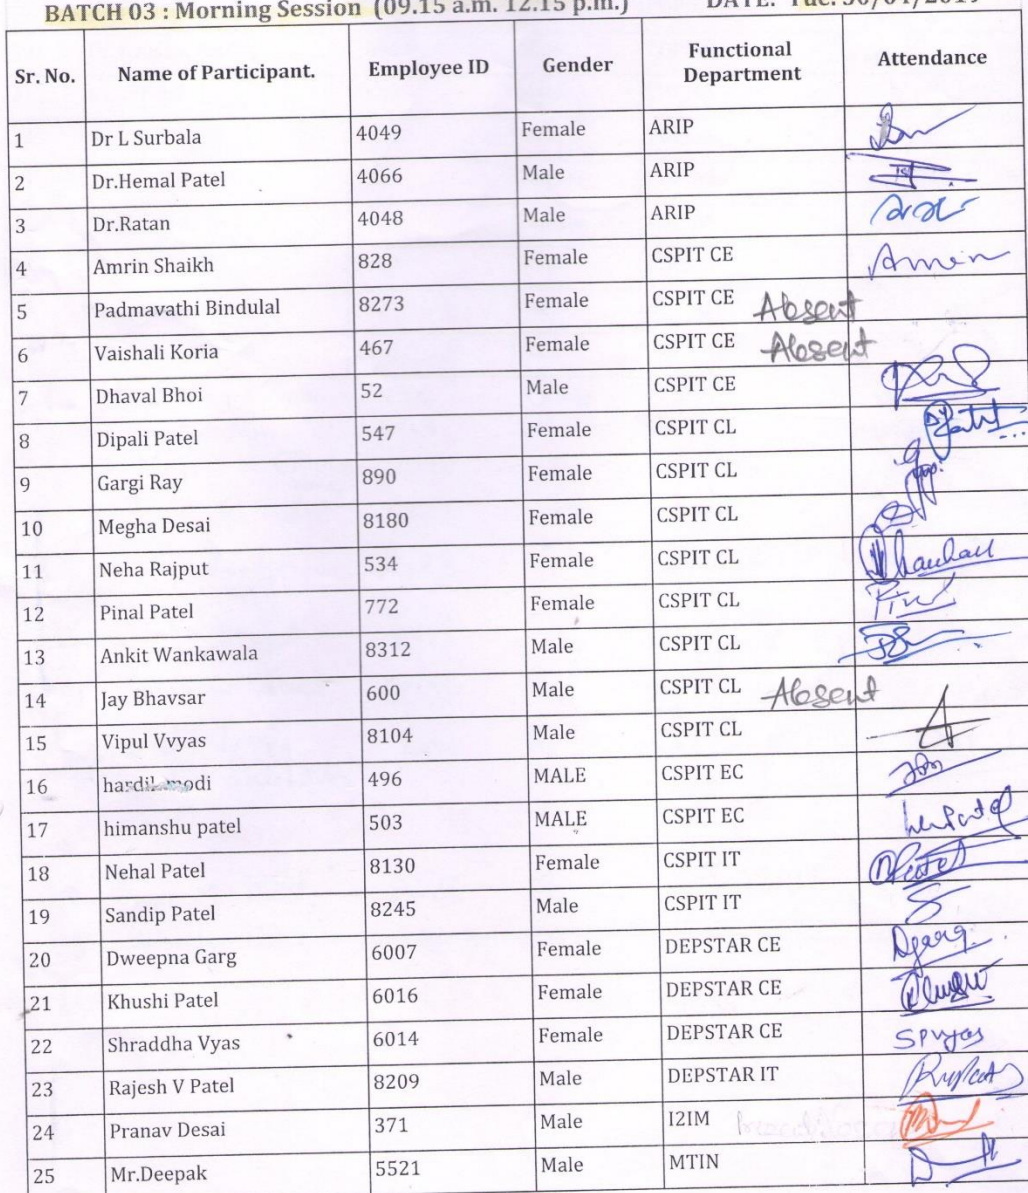 BATCH 03 : Morning Session (09.15 a.m. 12.15 p.m.) DATE: Tue. 30/04/2019
Sr. No. Name of Participant. Employee ID Gender Functional Department Attendance
1 Dr L Surbala 4049 Female ARIP
2 Dr.Hemal Patel 4066 Male ARIP
3 Dr.Ratan 4048 Male ARIP
4 Amrin Shaikh 828 Female CSPIT CE Amrin
5 Padmavathi Bindulal 8273 Female CSPIT CE Absent
6 Vaishali Koria 467 Female CSPIT CE Absent
7 Dhaval Bhoi 52 Male CSPIT CE
8 Dipali Patel 547 Female CSPIT CL
9 Gargi Ray 890 Female CSPIT CL
10 Megha Desai 8180 Female CSPIT CL
11 Neha Rajput 534 Female CSPIT CL
12 Pinal Patel 772 Female CSPIT CL
13 Ankit Wankawala 8312 Male CSPIT CL
14 Jay Bhavsar 600 Male CSPIT CL Absent
15 Vipul Vvyas 8104 Male CSPIT CL
16 hardik modi 496 MALE CSPIT EC
17 himanshu patel 503 MALE CSPIT EC
18 Nehal Patel 8130 Female CSPIT IT
19 Sandip Patel 8245 Male CSPIT IT
20 Dweepna Garg 6007 Female DEPSTAR CE Dgarg
21 Khushi Patel 6016 Female DEPSTAR CE
22 Shraddha Vyas 6014 Female DEPSTAR CE SPVyas
23 Rajesh V Patel 8209 Male DEPSTAR IT
24 Pranav Desai 371 Male I2IM
25 Mr.Deepak 5521 Male MTIN